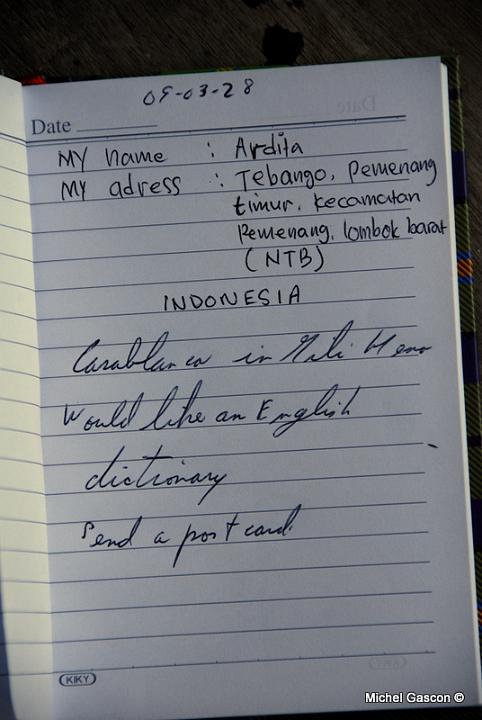 09-03-28
Date
MY name : Ardita
MY adress : Tebango, Pemenang
timur, kecamatan
Pemenang, lombok barat
(NTB)
INDONESIA
Casablanca in Gili Meno
Would like an English
dictionary
Send a post card
KIKY
Michel Gascon ©